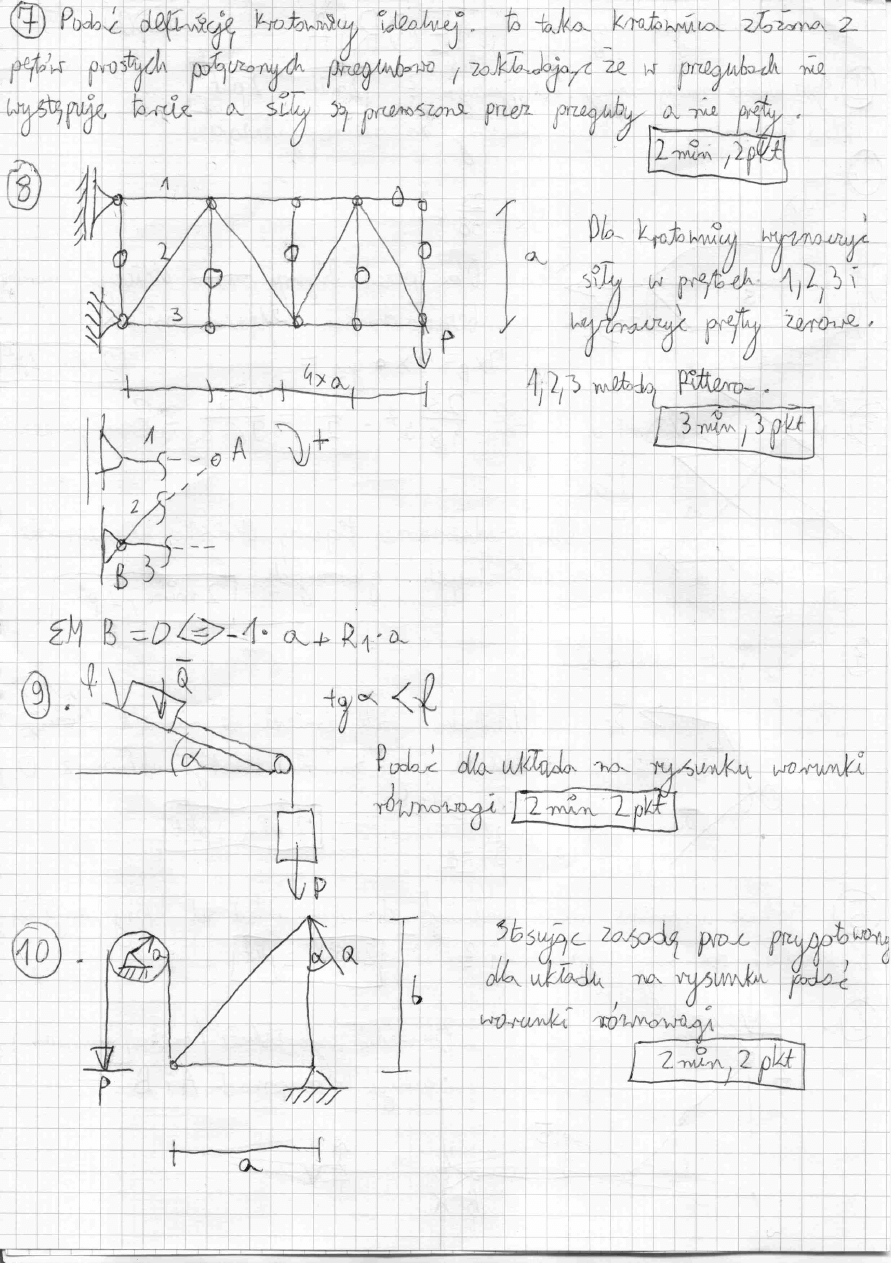 7 Podać definicję kratownicy idealnej. to taka kratownica złożona z
pętów prostych połączonych przegubowo, zakładając że w przegubach nie
występuje tarcie a siły są przenoszone przez przeguby a nie pręty.
2 min, 2pkt
8
1
2
3
0
P
a
4xa
Dla kratownicy wyznaczyć
siły w prętach 1,2,3 i
wyznaczyć pręty zerowe.
1,2,3 metodą Rittera.
3 min, 3 pkt
1
A
+
2
B 3
ΣM B = 0 <=> -1· a + R1·a
9.
f
Q
α
P
tg α < f
Podać dla układa na rysunku warunki
równowagi. 2 min 2pkt
10.
a
P
α
Q
b
a
Stosując zasadę prac przygotowany
dla układu na rysunku podać
warunki równowagi
2 min, 2 pkt